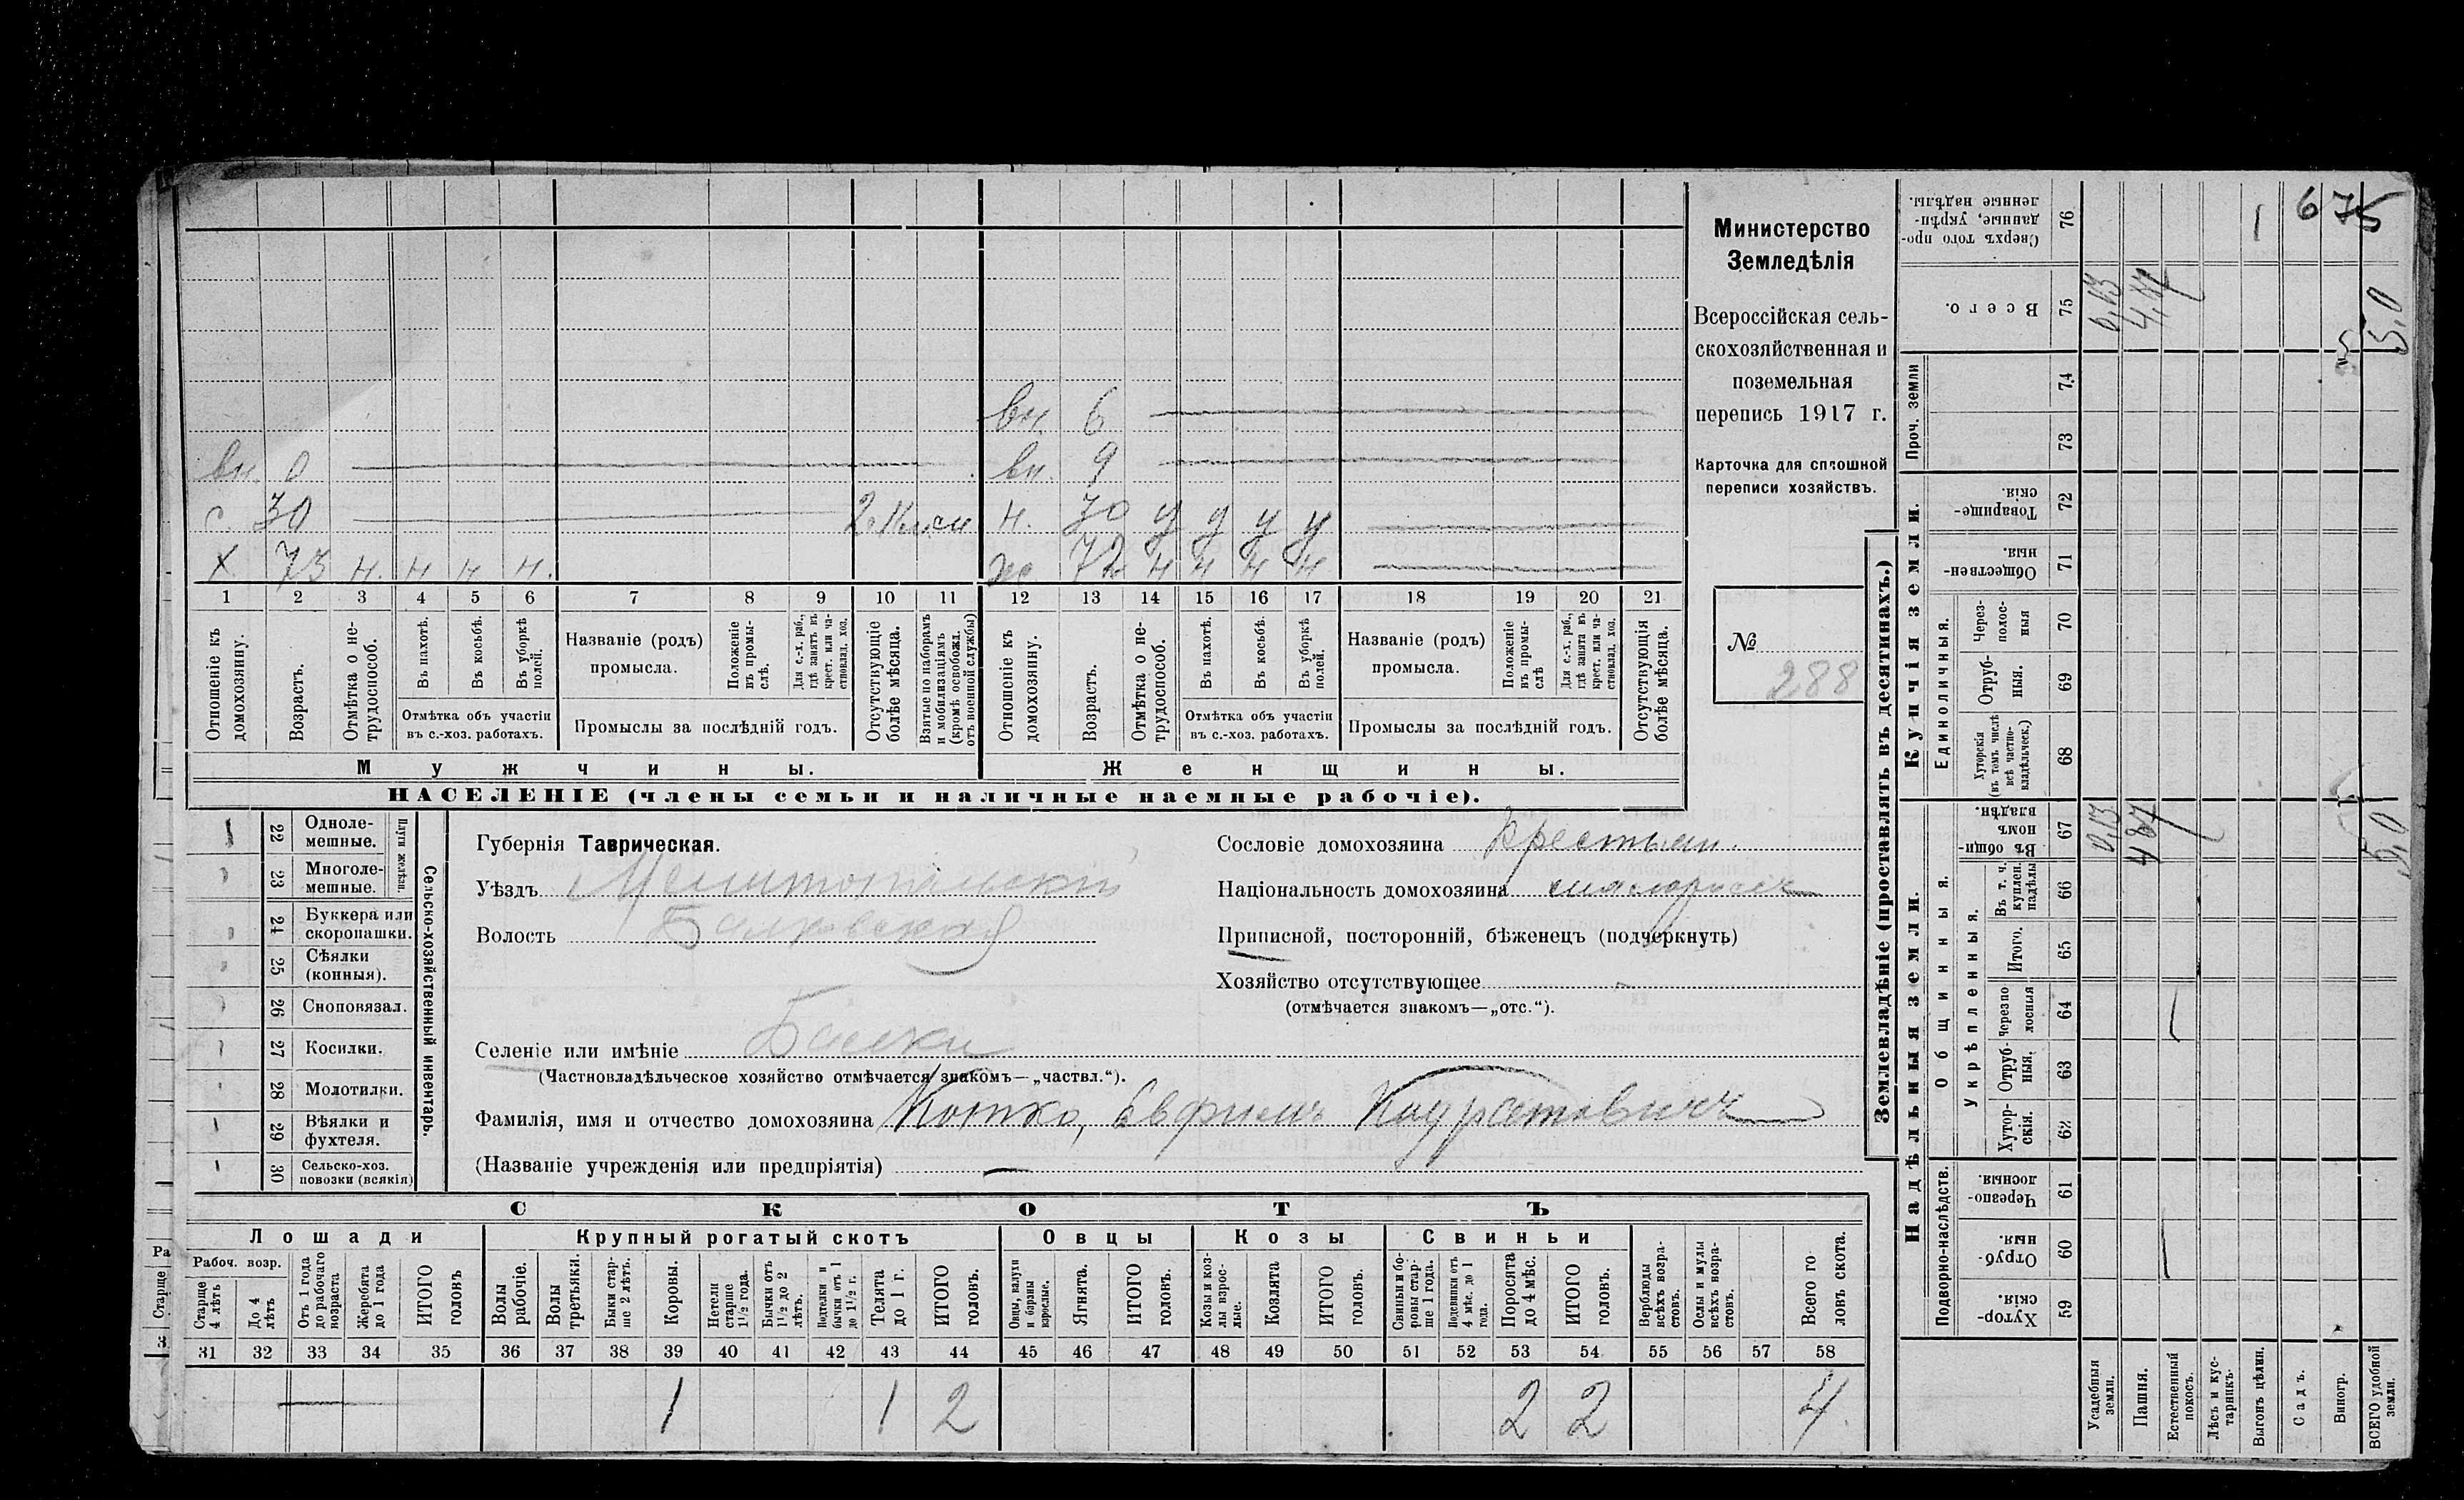 1 6 75
вн. 6
вн. 0 вн. 9
с. 30 н. 30 у у у у
х 73 н. н н н. ж 72 н н н н
1 2 3 4 5 6 7 8 9 10 11 12 13 14 15 16 17 18 19 20 21
Отношеніе къ домохозяину.
Возрастъ.
Отмѣтка о нетрудоспособ.
Въ пахотѣ.
Въ косьбѣ.
Въ уборкѣ полей.
Отмѣтка объ участіи
въ с.-хоз. работахъ.
Названіе (родъ)
промысла.
Положеніе въ промыслѣ.
Для с.-х. раб., гдѣ занятъ въ крест. или частновлад. хоз.
Промыслы за послѣдній годъ.
Отсутствующіе болѣе мѣсяца.
Взятые по наборамъ и мобилизаціямъ (кромѣ освобожд. отъ военной службы)
Отношеніе къ домохозяину.
Возрастъ.
Отмѣтка о нетрудоспособ.
Въ пахотѣ.
Въ косьбѣ.
Въ уборкѣ полей.
Отмѣтка объ участіи
въ с.-хоз. работахъ.
Названіе (родъ)
промысла.
Положеніе въ промыслѣ
Для с.-х. раб., гдѣ занята въ крест. или частновлад. хоз.
Промыслы за послѣдній годъ.
Отсутствующія болѣе мѣсяца.
Мужчины. Женщины.
НАСЕЛЕНІЕ (члены семьи и наличные наемные рабочіе).
Министерство
Земледѣлія
Всероссійская сель-
скохозяйственная и
поземельная
перепись 1917 г.
Карточка для сплошной
переписи хозяйствъ.
№
288
22 Одноле-
мешные.
23 Многоле-
мешные.
Плуги желѣзн.
24 Буккера или
скоропашки.
25 Сѣялки
(конныя).
26 Сноповязал.
27 Косилки.
28 Молотилки.
29 Вѣялки и
фухтеля.
30 Сельско-хоз.
повозки (всякія)
Сельско-хозяйственный инвентарь.
Губернія Таврическая.
Уѣздъ Мелитопольскій
Волость Балковская
Селеніе или имѣніе Балки
(Частновладѣльческое хозяйство отмѣчается знакомъ—„частвл.“).
Фамилія, имя и отчество домохозяина Котко, Евфимъ
(Названіе учрежденія или предпріятія)
Сословіе домохозяина Крестьян.
Національность домохозяина малорусъ
Приписной, посторонній, бѣженецъ (подчеркнуть)
Хозяйство отсутствующее
(отмѣчается знакомъ—„отс.“).
СКОТЪ
Лошади Крупный рогатый скотъ Овцы Козы Свиньи
Рабоч. возр.
Старше 4 лѣтъ
До 4 лѣтъ
Отъ 1 года до рабочаго возраста
Жеребята до 1 года
ИТОГО головъ
Волы рабочіе.
Волы третьяки.
Быки старше 2 лѣтъ.
Коровы.
Нетели старше 1½ года.
Бычки отъ 1½ до 2 лѣтъ.
Подтелки и бычки отъ 1 до 1½ г.
Телята до 1 г.
ИТОГО головъ.
Овцы, валухи и бараны взрослые.
Ягнята.
ИТОГО головъ.
Козы и козлы взрослые.
Козлята
ИТОГО головъ.
Свиньи и боровы старше 1 года.
Подсвинки отъ 4 мѣс. до 1 года.
Поросята до 4 мѣс.
ИТОГО головъ.
Верблюды всѣхъ возрастовъ.
Ослы и мулы всѣхъ возрастовъ.
Всего головъ скота.
31 32 33 34 35 36 37 38 39 40 41 42 43 44 45 46 47 48 49 50 51 52 53 54 55 56 57 58
1 1 2 2 2 4
Землевладѣніе (проставлять въ десятинахъ.)
Надѣльныя земли.
Купчія земли.
Проч. земли
Подворно-наслѣдств.
Общинныя.
Укрѣпленныя.
Единоличныя.
59 Хуторскія
60 Отрубныя.
61 Черезполосныя.
62 Хуторскія.
63 Отрубныя.
64 Черезполосныя
65 Итого.
66 Въ т. ч. куплен. надѣлы
67 Въ общинномъ владѣн.
68 Хуторскія (въ томъ числѣ всѣ частновладѣльческ.)
69 Отрубныя.
70 Черезполосныя
71 Общественныя.
72 Товарищескія.
73
74
75 Всего.
76 Сверхъ того проданные, укрѣпленные надѣлы.
Усадебныя земли.
Пашня.
Естественный покосъ.
Лѣсъ и кустарникъ.
Выгонъ цѣлин.
Садъ.
Виногр.
ВСЕГО удобной земли.
0,13 4,87 5,0
0,13 4,87 5,0